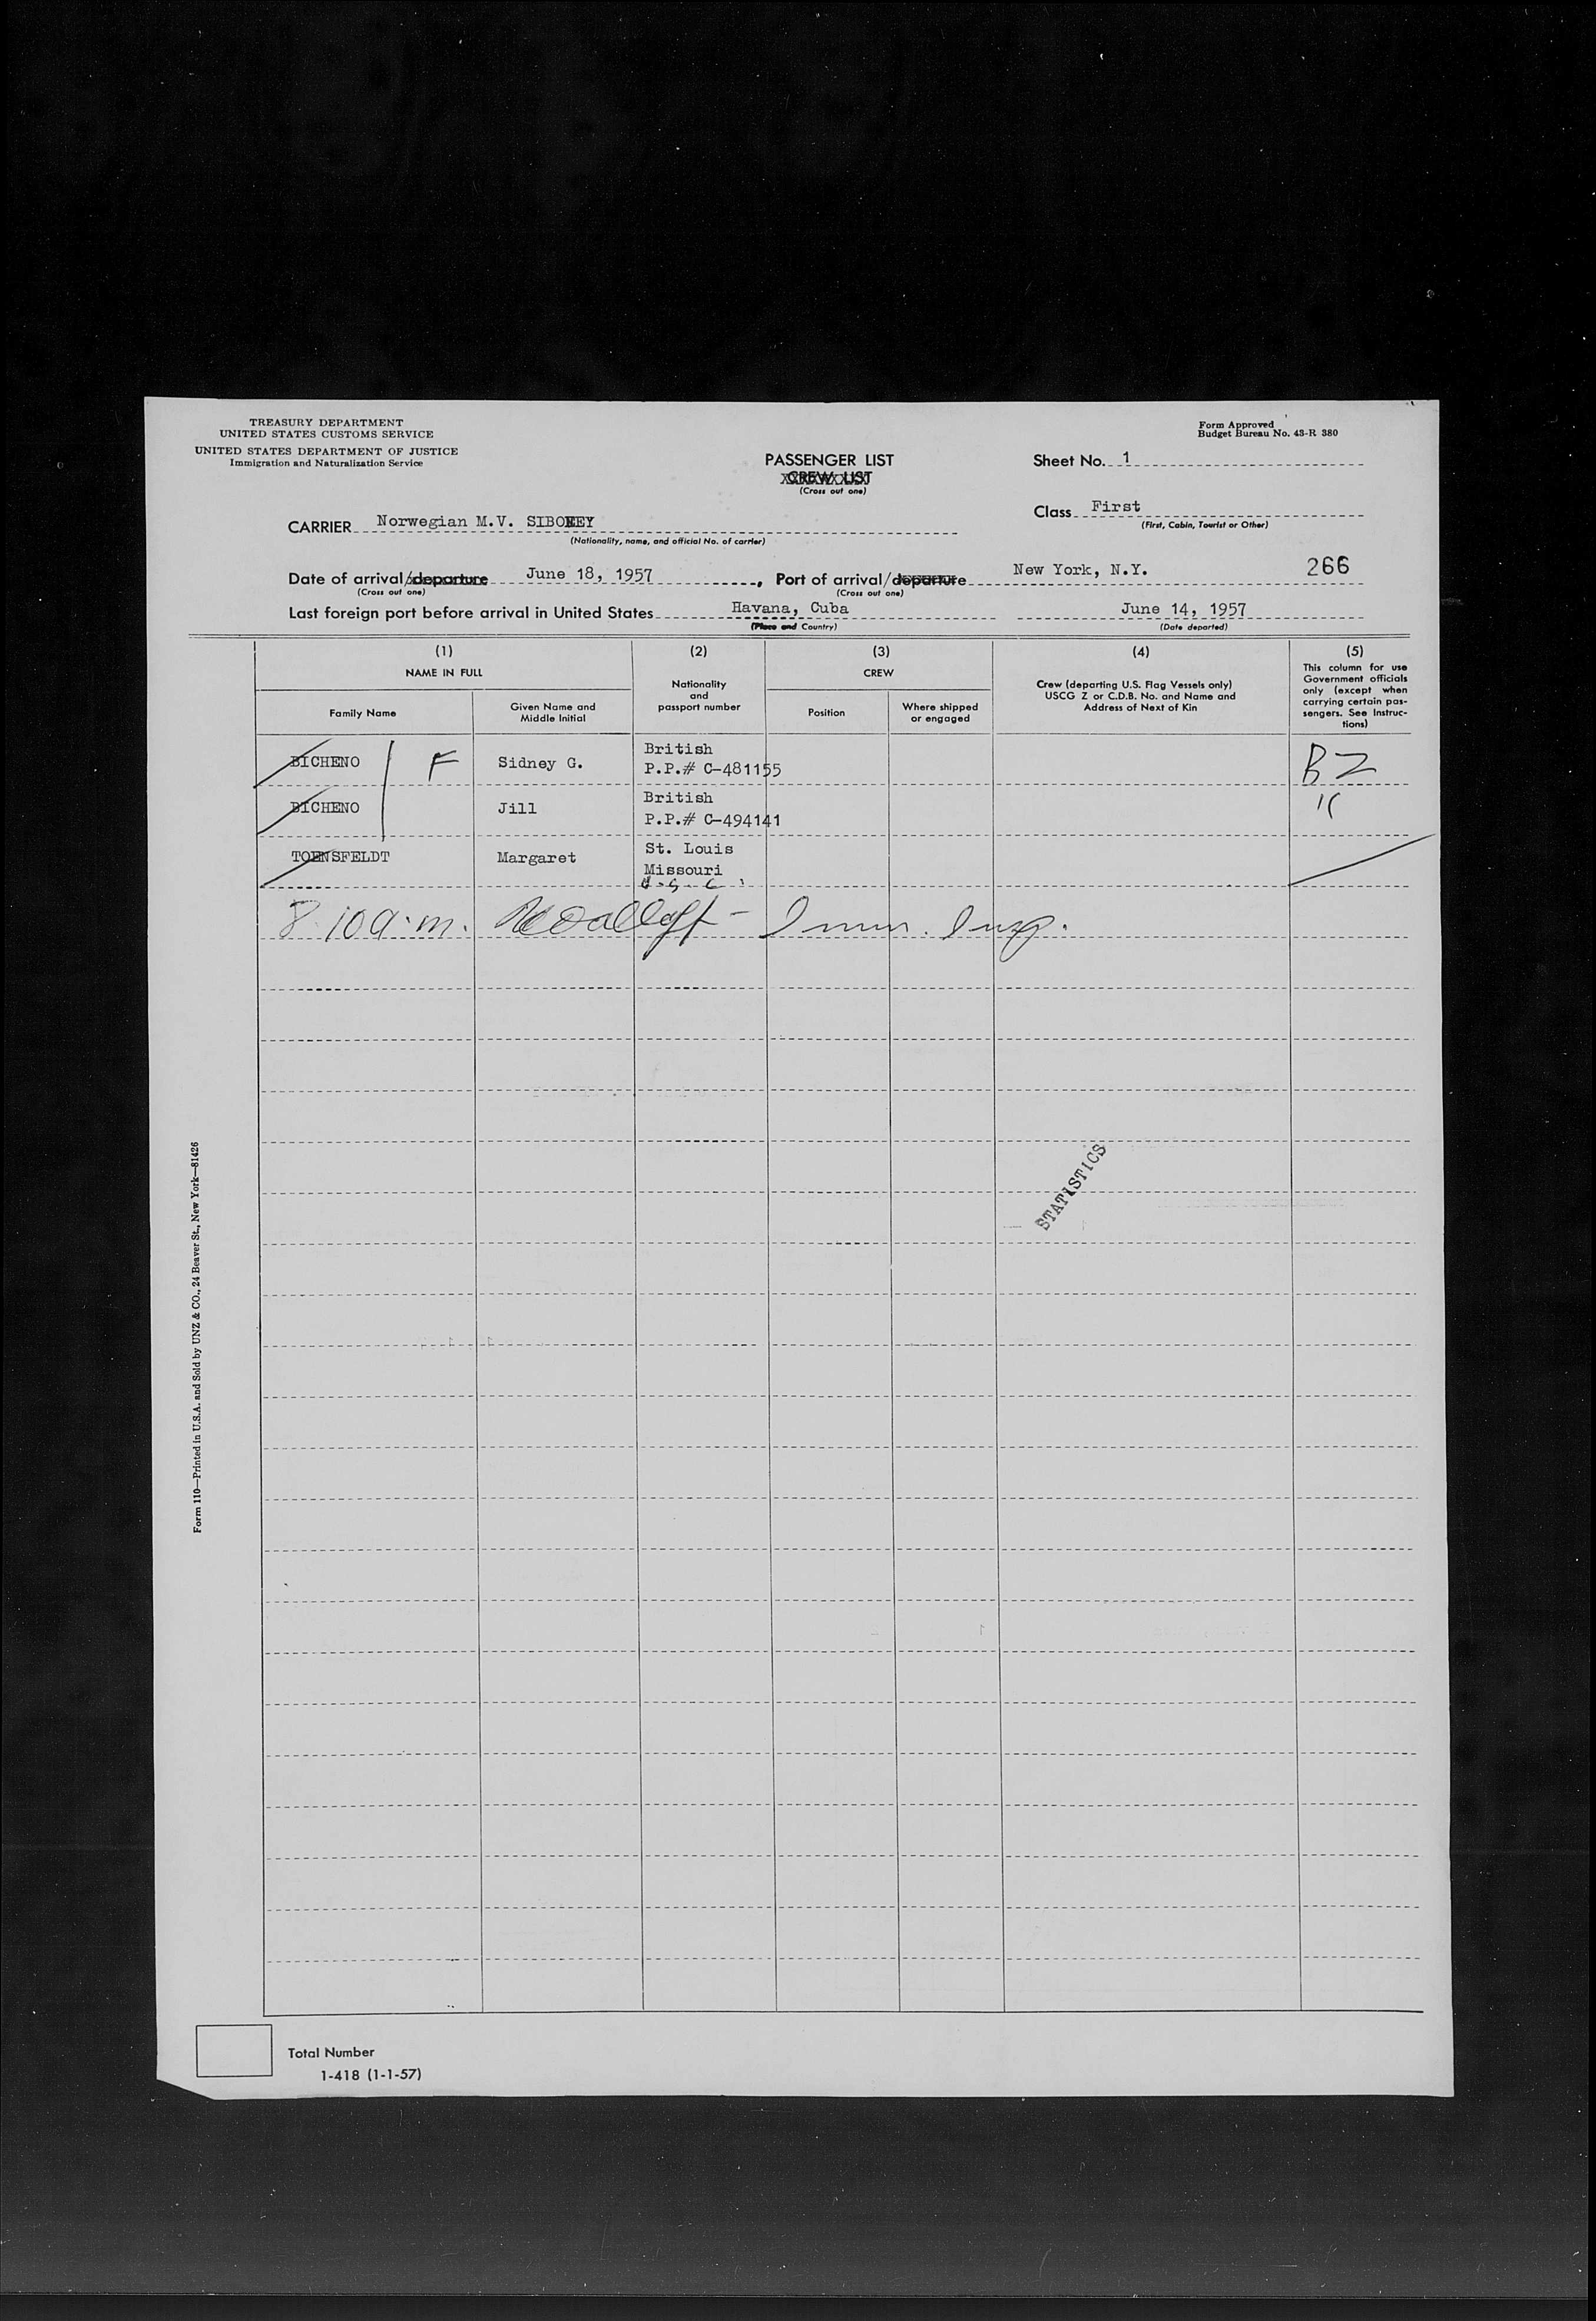 TREASURY DEPARTMENT
UNITED STATES CUSTOMS SERVICE
UNITED STATES DEPARTMENT OF JUSTICE
Immigration and Naturalization Service
Form Approved
Budget Bureau No. 43-R 380
PASSENGER LIST
CREW LIST
(Cross out one)
Sheet No. 1
Class First
(First, Cabin, Tourist or Other)
CARRIER Norwegian M.V. SIBONEY
(Nationality, name, and official No. of carrier)
Date of arrival/departure June 18, 1957, Port of arrival/departure New York, N.Y. 266
(Cross out one) (Cross out one)
Last foreign port before arrival in United States Havana, Cuba June 14, 1957
(Place and Country) (Date departed)
(1) (2) (3) (4) (5)
NAME IN FULL
Family Name
Given Name and
Middle Initial
Nationality
and
passport number
CREW
Position
Where shipped
or engaged
Crew (departing U.S. Flag Vessels only)
USCG Z or C.D.B. No. and Name and
Address of Next of Kin
This column for use
Government officials
only (except when
carrying certain pas-
sengers. See Instruc-
tions)
BICHENO F Sidney G. British B2
P.P.# C-481155
BICHENO Jill British "
P.P.# C-494141
TOENSFELDT Margaret St. Louis
Missouri
U.S.C.
8 10 a.m. - Imm. Insp.
STATISTICS
Form 110—Printed in U.S.A. and Sold by UNZ & CO., 24 Beaver St., New York—81426
Total Number
1-418 (1-1-57)